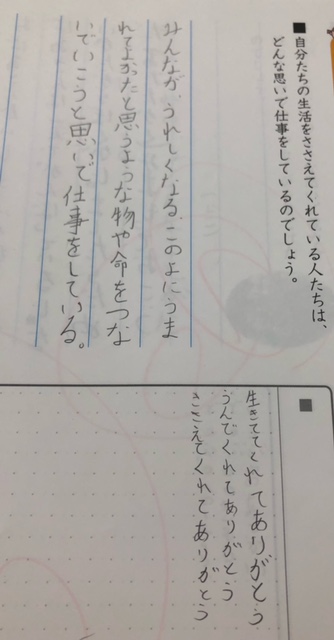 ■自分たちの生活をささえてくれている人たちは、
どんな思いで仕事をしているのでしょう。
みんなが、うれしくなる、このよにうま
れてよかったと思うような物や命をつな
いでいこうと思いで仕事をしている。
生きててくれてありがとう
うんでくれてありがとう
ささえてくれてありがとう